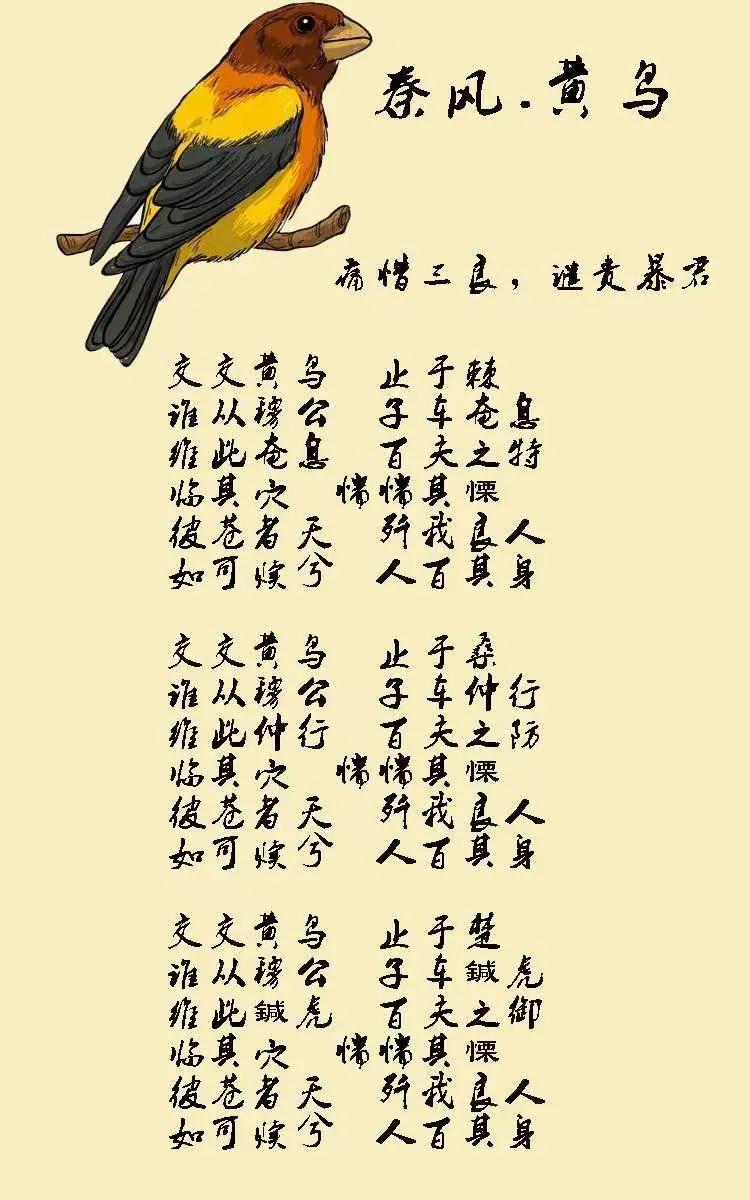 秦风·黄鸟
痛惜三良，谴责暴君
交交黄鸟 止于棘
谁从穆公 子车奄息
维此奄息 百夫之特
临其穴 惴惴其慄
彼苍者天 歼我良人
如可赎兮 人百其身
交交黄鸟 止于桑
谁从穆公 子车仲行
维此仲行 百夫之防
临其穴 惴惴其慄
彼苍者天 歼我良人
如可赎兮 人百其身
交交黄鸟 止于楚
谁从穆公 子车鍼虎
维此鍼虎 百夫之御
临其穴 惴惴其慄
彼苍者天 歼我良人
如可赎兮 人百其身